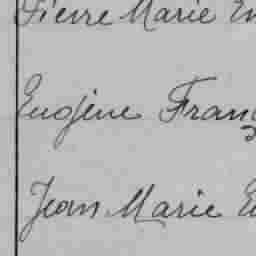 Pierre Marie Eu
Eugène Fran
Jean Marie Eu